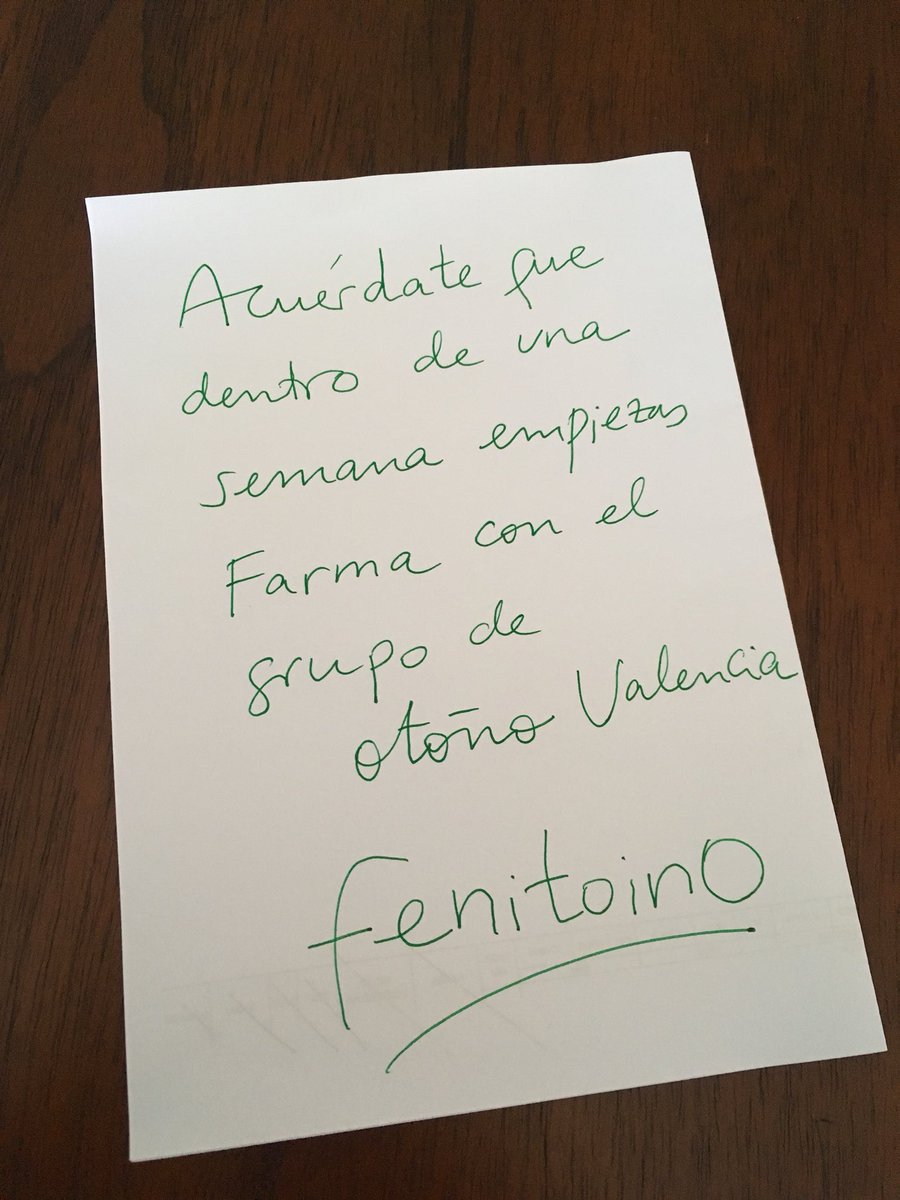 Acuérdate que
dentro de una
semana empiezas
Farma con el
grupo de
otoño Valencia
fenitoino